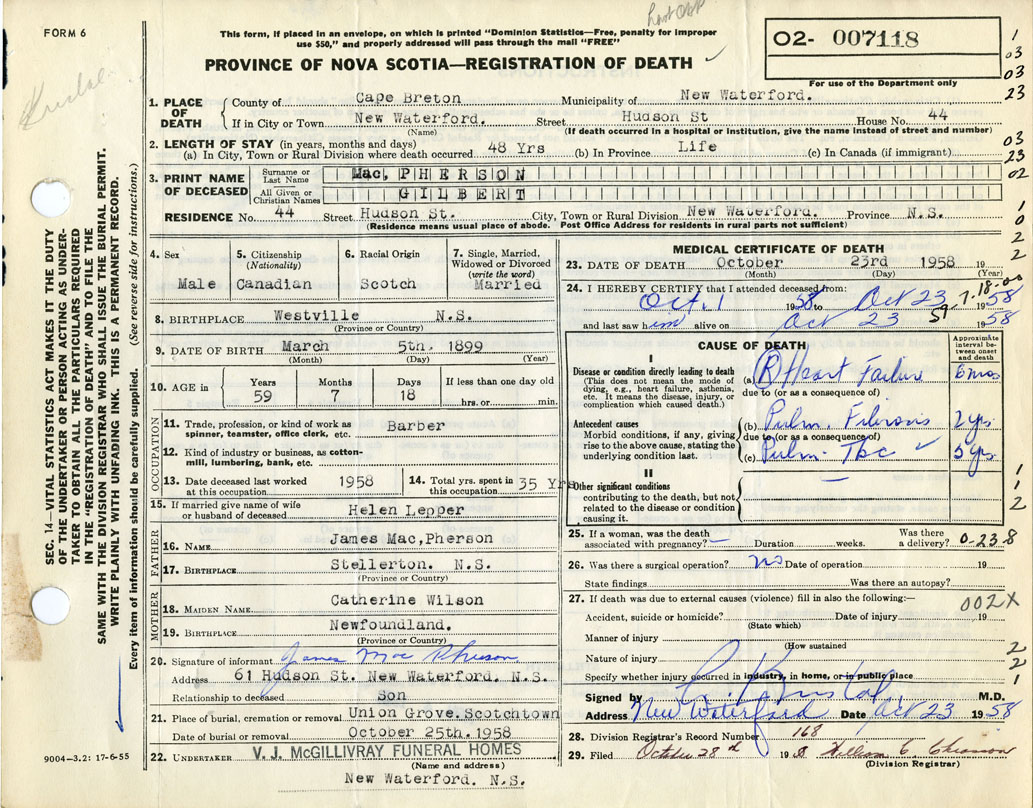 FORM 6
This form, if placed in an envelope, on which is printed "Dominion Statistics—Free, penalty for improper
use $50," and properly addressed will pass through the mail "FREE"
PROVINCE OF NOVA SCOTIA—REGISTRATION OF DEATH
02- 007118
For use of the Department only
1. PLACE OF DEATH
County of Cape Breton Municipality of New Waterford.
If in City or Town New Waterford. Street Hudson St House No. 44
(Name) (If death occurred in a hospital or institution, give the name instead of street and number)
2. LENGTH OF STAY (in years, months and days)
(a) In City, Town or Rural Division where death occurred 48 Yrs (b) In Province Life (c) In Canada (if immigrant)
3. PRINT NAME OF DECEASED
Surname or Last Name Mac, PHERSON
All Given or Christian Names GILBERT
RESIDENCE No. 44 Street Hudson St. City, Town or Rural Division New Waterford. Province N.S.
(Residence means usual place of abode. Post Office Address for residents in rural parts not sufficient)
4. Sex
Male
5. Citizenship (Nationality)
Canadian
6. Racial Origin
Scotch
7. Single, Married, Widowed or Divorced (write the word)
Married
8. BIRTHPLACE Westville N.S.
(Province or Country)
9. DATE OF BIRTH March 5th, 1899
(Month) (Day) (Year)
10. AGE in Years Months Days If less than one day old
59 7 18 hrs. or min.
OCCUPATION
11. Trade, profession, or kind of work as Barber
spinner, teamster, office clerk, etc.
12. Kind of industry or business, as cotton-
mill, lumbering, bank, etc.
13. Date deceased last worked at this occupation 1958
14. Total yrs. spent in this occupation 35 Yrs
15. If married give name of wife or husband of deceased Helen Lepper
FATHER
16. NAME James Mac,Pherson
17. BIRTHPLACE Stellerton. N.S.
(Province or Country)
MOTHER
18. MAIDEN NAME Catherine Wilson
19. BIRTHPLACE Newfoundland.
(Province or Country)
20. Signature of informant James MacPherson
Address 61 Hudson St. New Waterford. N.S.
Relationship to deceased Son
21. Place of burial, cremation or removal Union Grove.Scotchtown
Date of burial or removal October 25th.1958
22. UNDERTAKER V. J. McGILLIVRAY FUNERAL HOMES
(Name and address)
New Waterford. N.S.
MEDICAL CERTIFICATE OF DEATH
23. DATE OF DEATH October 23rd 1958 19
(Month) (Day) (Year)
24. I HEREBY CERTIFY that I attended deceased from:
Oct. 1 1958 to Oct 23 1958
and last saw him alive on Oct 23 1958
59-7-18-0
CAUSE OF DEATH
Approximate interval between onset and death
I
Disease or condition directly leading to death
(This does not mean the mode of dying, e.g., heart failure, asthenia, etc. It means the disease, injury, or complication which caused death.)
(a) (R) Heart Failure 6 mos
due to (or as a consequence of)
Antecedent causes
Morbid conditions, if any, giving rise to the above cause, stating the underlying condition last.
(b) Pulm. Fibrosis 2 yrs
due to (or as a consequence of)
(c) Pulm. Tbc 5 yrs.
II
Other significant conditions
contributing to the death, but not related to the disease or condition causing it.
25. If a woman, was the death associated with pregnancy? — Duration weeks. Was there a delivery? 0-23-8
26. Was there a surgical operation? no Date of operation 19
State findings Was there an autopsy?
27. If death was due to external causes (violence) fill in also the following:—
002X
Accident, suicide or homicide? Date of injury 19
(State which)
Manner of injury
(How sustained
Nature of injury
Specify whether injury occurred in industry, in home, or in public place
Signed by M.D.
Address New Waterford Date Oct 23 1958
28. Division Registrar's Record Number 168
29. Filed October 28th 1958 William C Chiasson
(Division Registrar)
SEC. 14—VITAL STATISTICS ACT MAKES IT THE DUTY
OF THE UNDERTAKER OR PERSON ACTING AS UNDER-
TAKER TO OBTAIN ALL THE PARTICULARS REQUIRED
IN THE "REGISTRATION OF DEATH" AND TO FILE IT
SAME WITH THE DIVISION REGISTRAR WHO SHALL ISSUE THE BURIAL PERMIT.
WRITE PLAINLY WITH UNFADING INK. THIS IS A PERMANENT RECORD.
Every item of information should be carefully supplied. (See reverse side for instructions.)
9004-3.2: 17-6-55
1
03
03
23
03
23
02
1
0
2
2
1
1
2
2
2
1